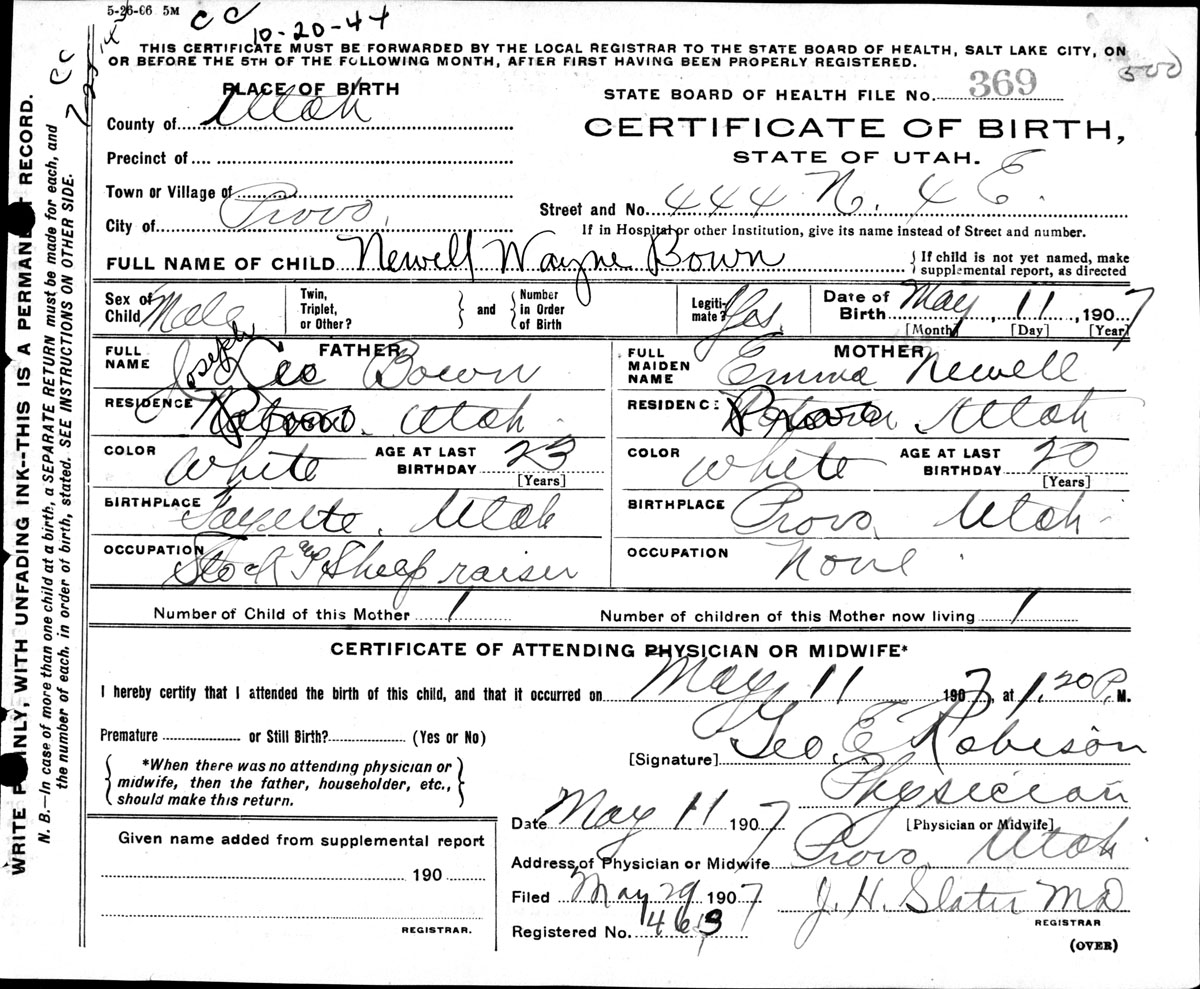 5-26-06 5M
CC 10-20-44
THIS CERTIFICATE MUST BE FORWARDED BY THE LOCAL REGISTRAR TO THE STATE BOARD OF HEALTH, SALT LAKE CITY, ON
OR BEFORE THE 5TH OF THE FOLLOWING MONTH, AFTER FIRST HAVING BEEN PROPERLY REGISTERED.
500
PLACE OF BIRTH
STATE BOARD OF HEALTH FILE No. 369
County of Utah
CERTIFICATE OF BIRTH,
Precinct of
STATE OF UTAH.
Town or Village of
City of Provo,
Street and No. 444 N. 4 E.
If in Hospital or other Institution, give its name instead of Street and number.
FULL NAME OF CHILD Newell Wayne Bown
{ If child is not yet named, make
supplemental report, as directed
Sex of Child Male
Twin, Triplet, or Other? } and { Number in Order of Birth
Legiti- mate? Yes
Date of Birth May, 11, 1907
[Month] [Day] [Year]
FATHER
FULL NAME Joseph Leo Bown
RESIDENCE Provo. Utah
COLOR White AGE AT LAST BIRTHDAY 23
[Years]
BIRTHPLACE Fayette, Utah
OCCUPATION Stock and Sheep raiser
MOTHER
FULL MAIDEN NAME Emma Newell
RESIDENCE Utah
COLOR White AGE AT LAST BIRTHDAY 20
[Years]
BIRTHPLACE Provo, Utah
OCCUPATION None
Number of Child of this Mother 1 Number of children of this Mother now living 1
CERTIFICATE OF ATTENDING PHYSICIAN OR MIDWIFE*
I hereby certify that I attended the birth of this child, and that it occurred on May 11 1907, at 1.20 P. M.
Premature or Still Birth? (Yes or No)
[Signature] Geo. E Robison
{ *When there was no attending physician or
midwife, then the father, householder, etc.,
should make this return. }
Physician
[Physician or Midwife]
Date May 11 1907
Address of Physician or Midwife Provo, Utah
Filed May 29 1907 J. H. Slater MD
REGISTRAR
Registered No. 1463
(OVER)
Given name added from supplemental report
190
REGISTRAR.
WRITE PLAINLY, WITH UNFADING INK--THIS IS A PERMANENT RECORD.
N. B.—In case of more than one child at a birth, a SEPARATE RETURN must be made for each, and
the number of each, in order of birth, stated. SEE INSTRUCTIONS ON OTHER SIDE.
CC